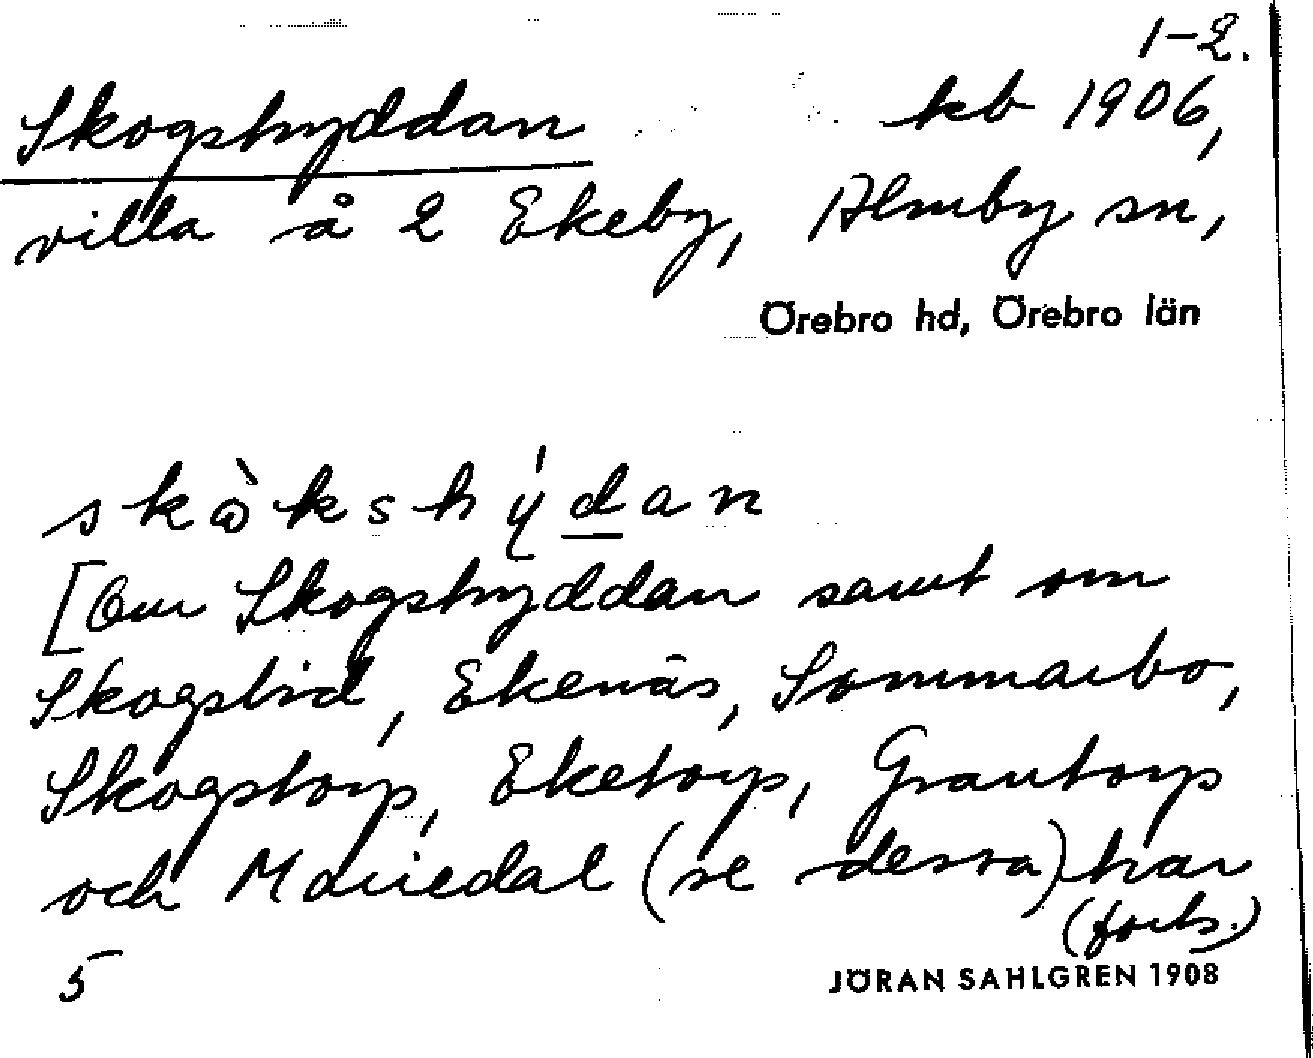 1-2.
Skogshyddan kb 1906,
villa å 2 Ekeby, Almby sn,
Örebro hd, Örebro län
skòkshýdan
[Om Skogshyddan samt om
Skogslid, Ekenäs, Sommarbo,
Skogstorp, Eketorp, Grantorp
och Mariedal (se dessa) har
(forts.)
5
JÖRAN SAHLGREN 1908